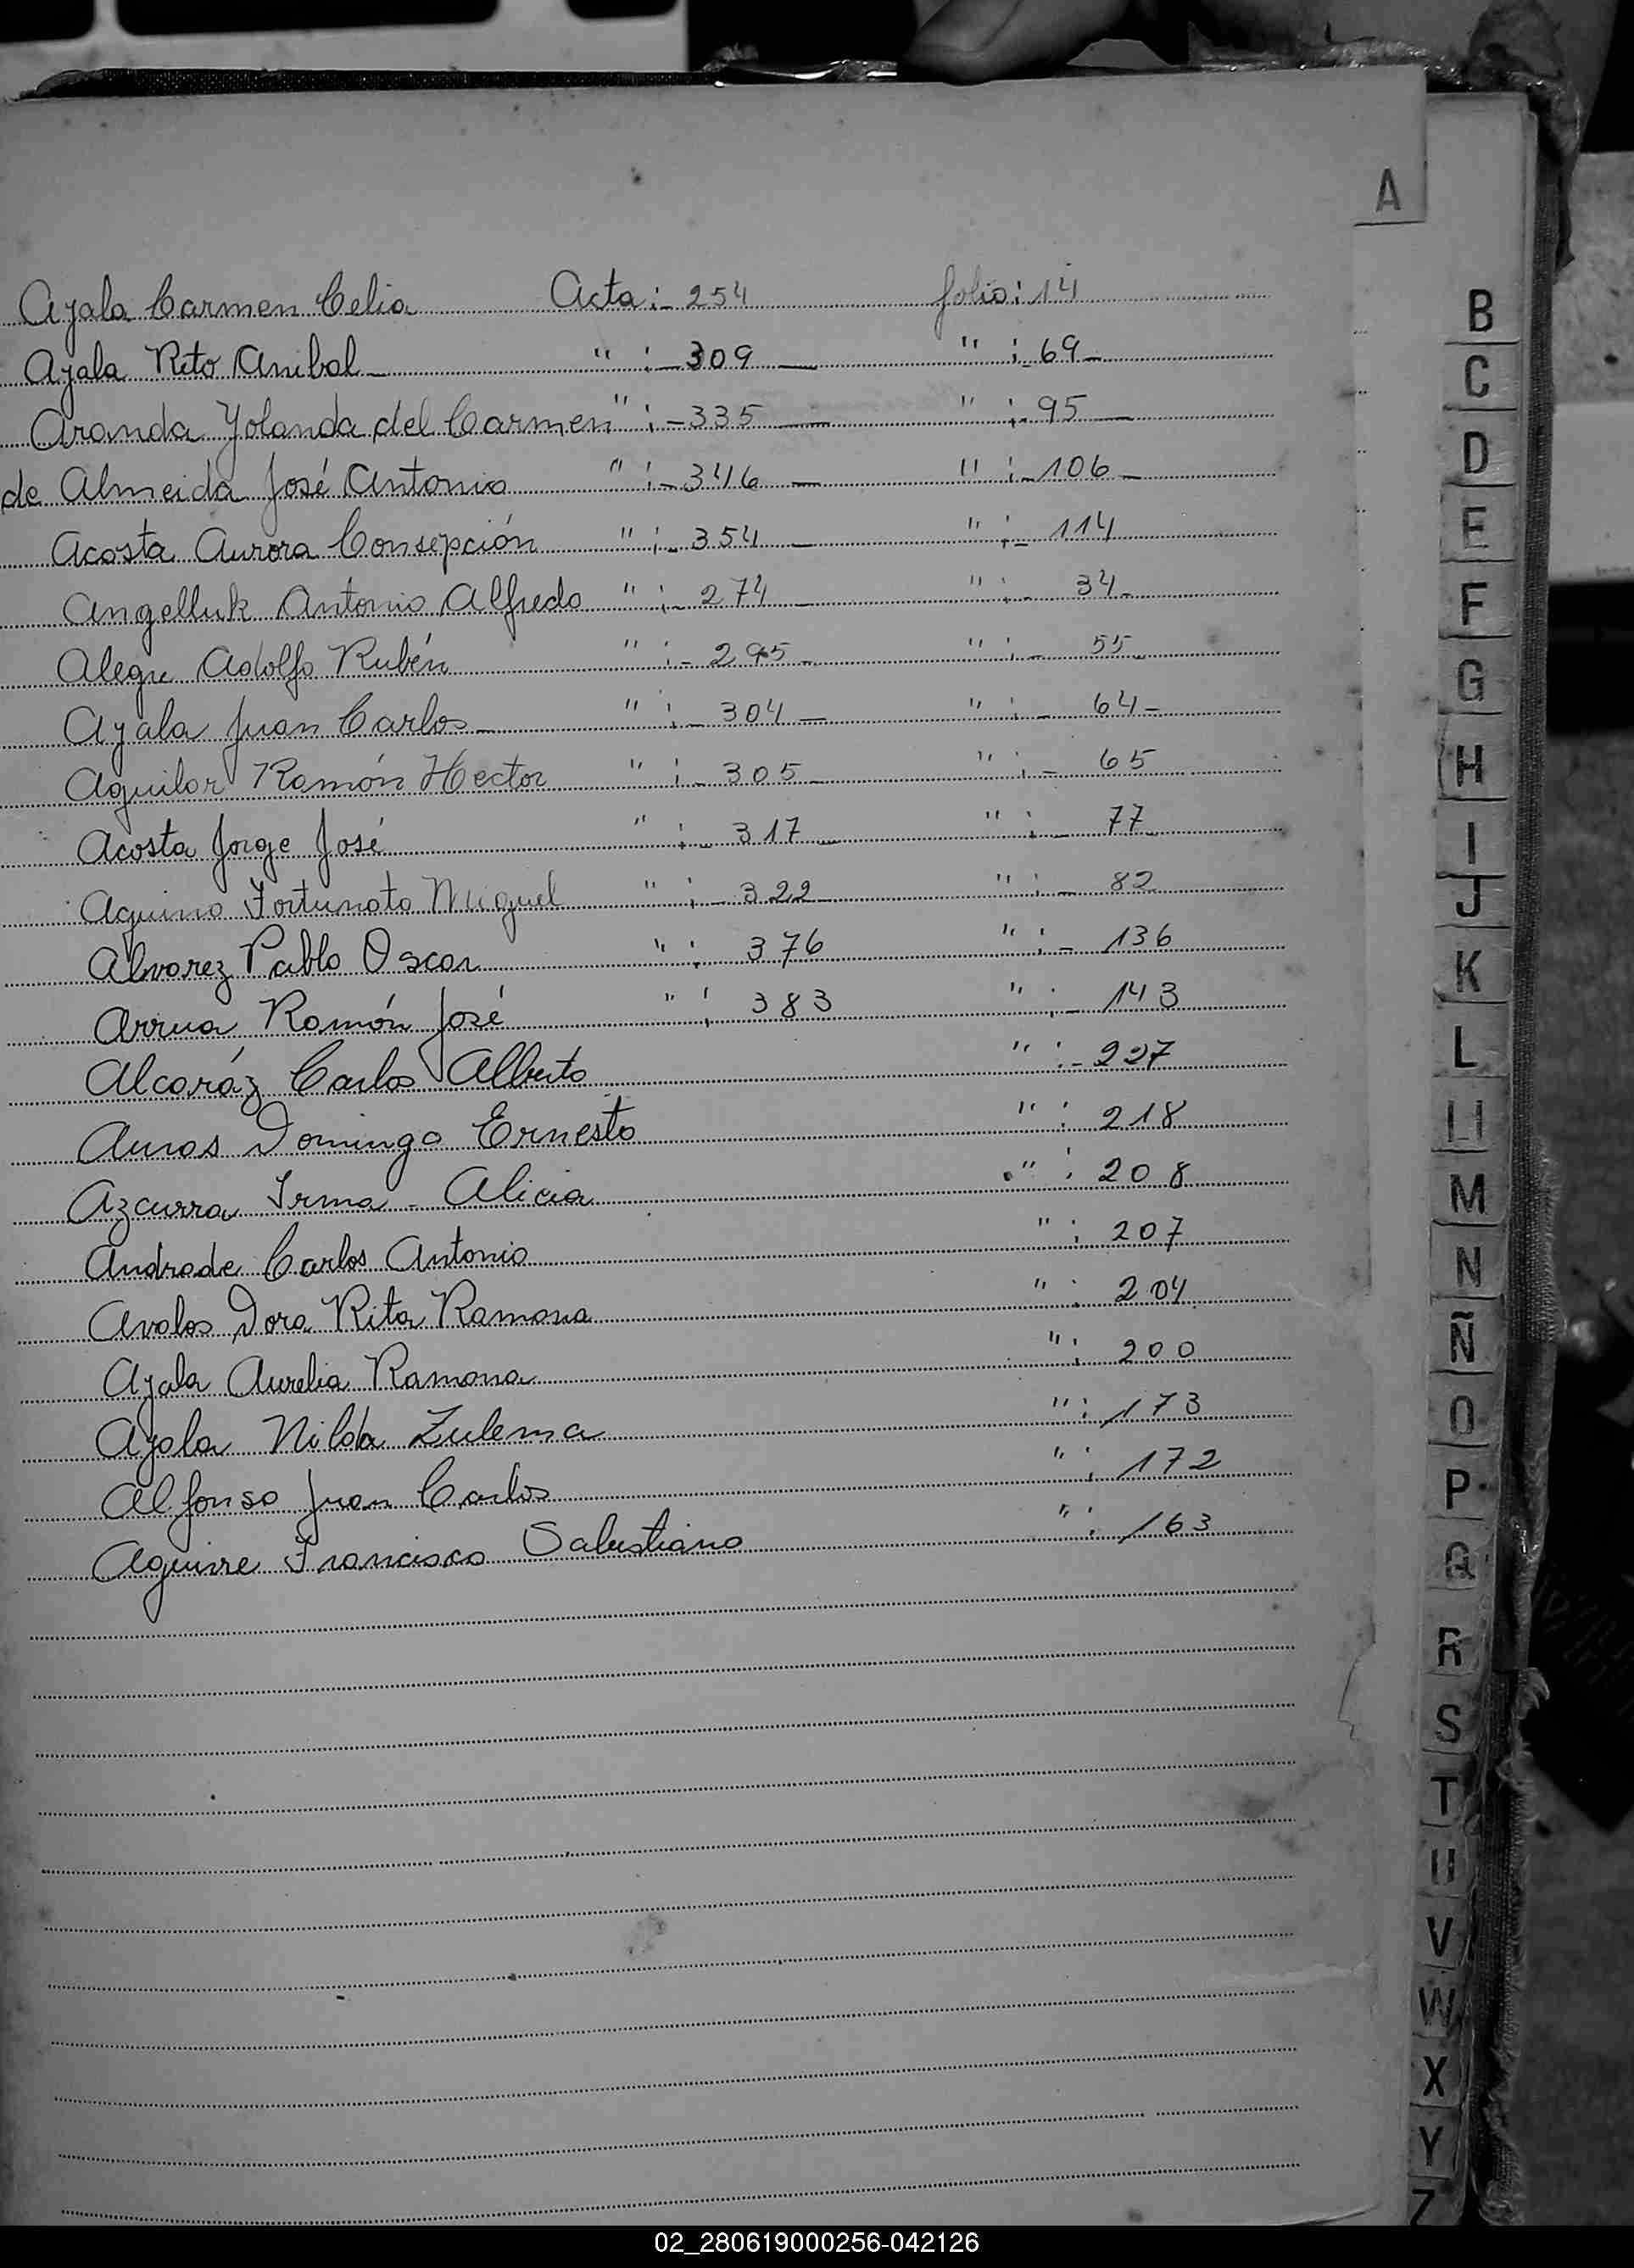 A
Ayala Carmen Celia Acta:- 254 folio: 14
Ayala Rito Anibal " :- 309 " :- 69-
Aranda Yolanda del Carmen " :- 335 " :- 95
de Almeida José Antonio " :- 346 " :- 106
Acosta Aurora Consepción " :- 354 " :- 114
Angelluk Antonio Alfredo " :- 274 " :- 34
Alegre Adolfo Rubén " :- 295 " :- 55
Ayala Juan Carlos " :- 304 " :- 64-
Aguilar Ramón Hector " :- 305 " :- 65
Acosta Jorge José " :- 317 " :- 77
Aquino Fortunato Miguel " :- 322 " :- 82
Alvarez Pablo Oscar " : 376 " :- 136
Arrua Ramón José " : 383 " :- 143
Alcaráz Carlos Alberto " :- 227
Domingo Ernesto " : 218
Azcurra Irma - Alicia " : 208
Andrade Carlos Antonio " : 207
Avalos Dora Rita Ramona " : 204
Ayala Aurelia Ramona " : 200
Ayala Nilda Zulema " : 173
Alfonso Juan Carlos " : 172
Aguirre Francisco Salustiano " : 163
B
C
D
E
F
G
H
I
J
K
L
M
N
Ñ
O
P
Q
R
S
T
U
V
W
X
Y
Z
02_280619000256-042126